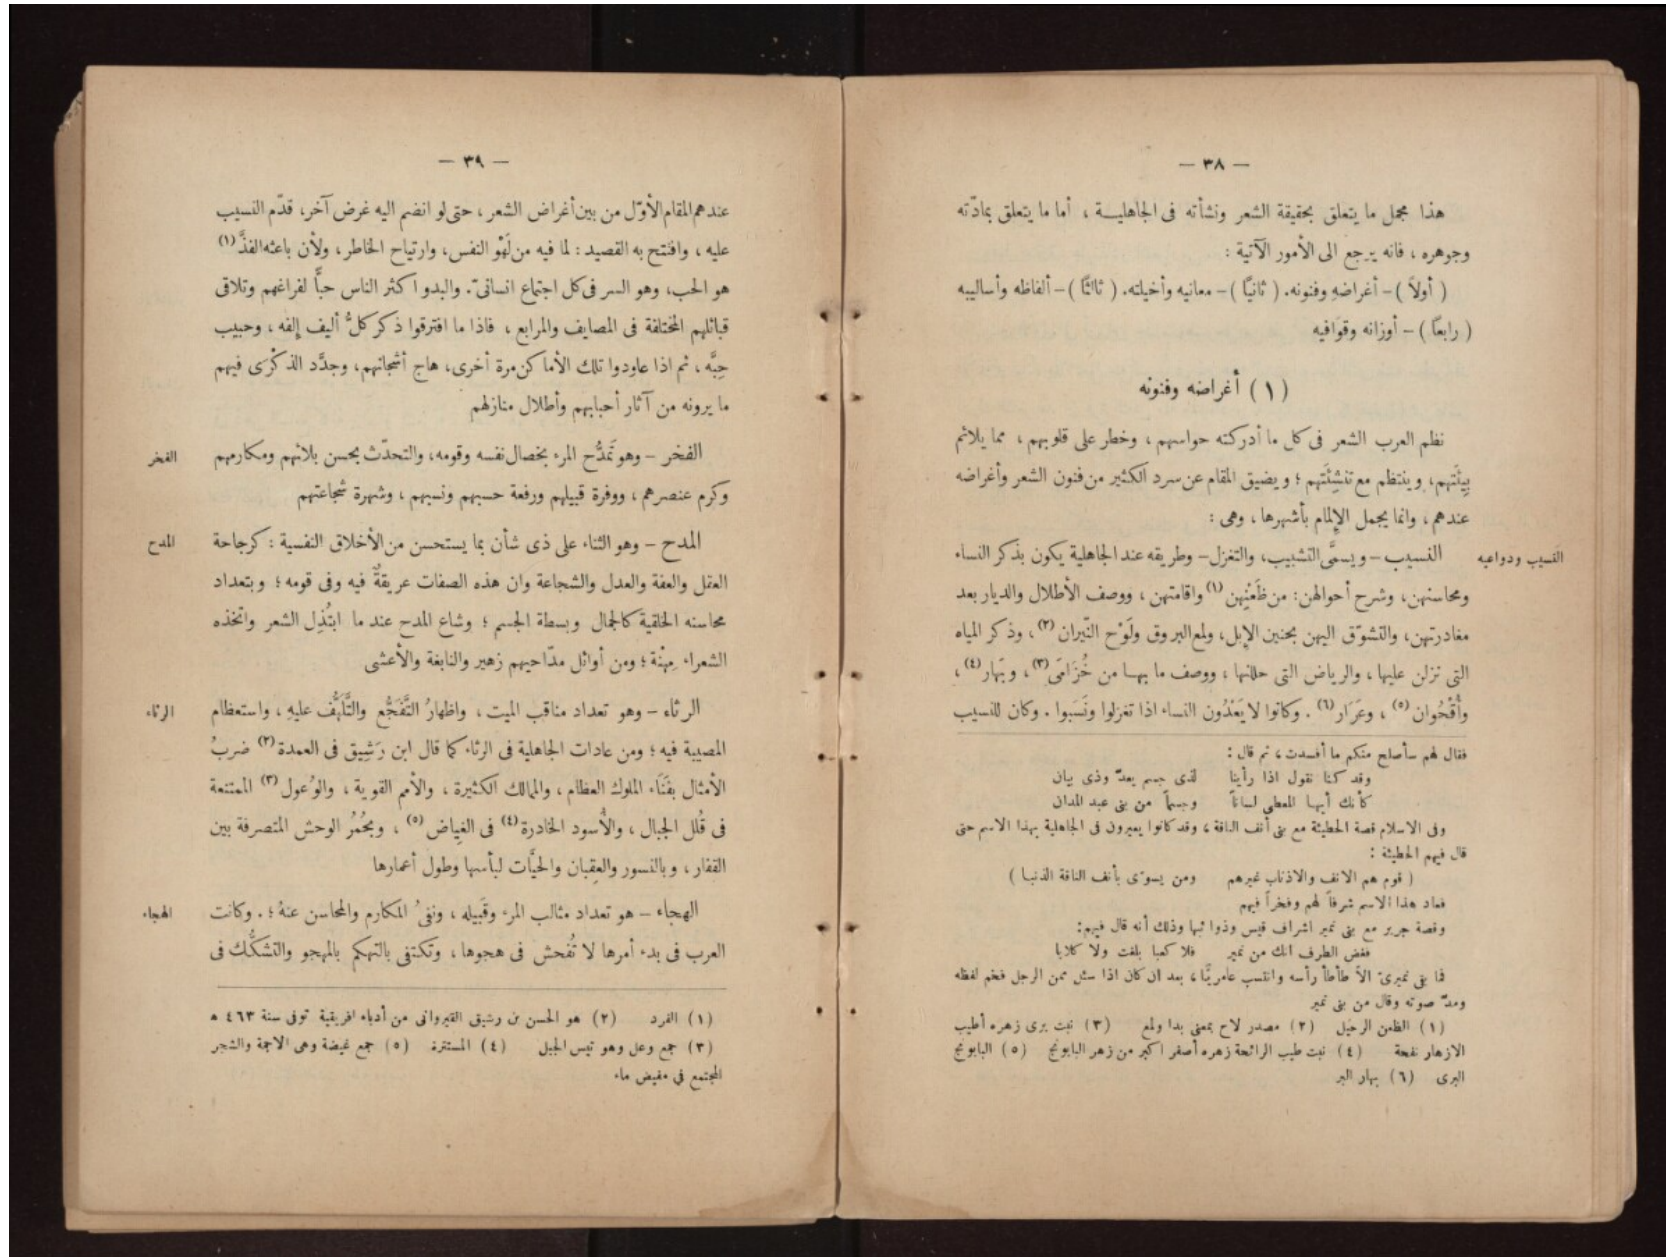 — ٣٨ —
هذا مجمل ما يتعلق بحقيقة الشعر ونشأته فى الجاهليـــة ، أما ما يتعلق بمادّته
وجوهره ، فانه يرجع الى الأمور الآتية :
( أولاً ) – أغراضه وفنونه. ( ثانيًا ) – معانيه وأخيلته. ( ثالثًا ) – ألفاظه وأساليبه
( رابعًا ) – أوزانه وقوَافيه
( ١ ) أغراضه وفنونه
نظم العرب الشعر فى كل ما أدركته حواسهم ، وخطر على قلوبهم ، مما يلائم
بِيئَتهم، وينتظم مع تنشِئَتهم ؛ ويضيق المقام عن سرد الكثير من فنون الشعر وأغراضه
عندهم ، وانما يجمل الإِلمام بأشهرها ، وهى :
النسيب ودواعيه
النسيب – ويسمَّى التشبيب، والتغزل – وطريقه عند الجاهلية يكون بذكر النساء
ومحاسنهن، وشرح أحوالهن: من ظَعْنِهن (١) واقامتهن ، ووصف الأطلال والديار بعد
مغادرتهن، والتشوّق اليهن بحنين الإبل، ولمع البروق ولَوْح النّيران (٢) ، وذكر المياه
التى نزلن عليها ، والرياض التى حللنها ؛ ووصف ما بهـا من خُزَامَى (٣) ، وبَهار (٤) ،
وأُقْحُوان (٥) ، وعَرَار (٦) . وكانوا لا يَعْدُون النساء اذا تغزلوا ونَسَبوا . وكان للنسيب
فقال لهم سأصلح منكم ما أفسدت ، ثم قال :
وقد كنا نقول اذا رأينا لذى جسم يعدّ وذى بيان
كأنك أيهـا المعطى لساناً وجسماً من بنى عبد المدان
وفى الاسلام قصة الحطيئة مع بنى أنف الناقة ، وقد كانوا يعيرون فى الجاهلية بهذا الاسم حتى
قال فيهم الحطيئة :
( قوم هم الانف والاذناب غيرهم ومن يسوّى بأنف الناقة الذنبـا )
فعاد هذا الاسم شرفاً لهم وفخراً فيهم
وقصة جرير مع بنى نمير اشراف قيس وذوائبها وذلك أنه قال فيهم:
فغض الطرف انك من نمير فلا كعبا بلغت ولا كلابا
فما بقى نميرىّ الا طأطأ رأسه وانتسب عامريًّا ، بعد ان كان اذا سئل ممن الرجل فخم لفظه
ومدّ صوته وقال من بنى نمير
(١) الظعن الرحيل (٢) مصدر لاح بمعنى بدا ولمع (٣) نبت برى زهره أطيب
الازهار نفحة (٤) نبت طيب الرائحة زهره أصفر اكبر من زهر البابونج (٥) البابونج
البرى (٦) بهار البر
— ٣٩ —
عندهم المقام الأوّل من بين أغراض الشعر ، حتى لو انضم اليه غرض آخر، قدّم النسيب
عليه ، وافتتح به القصيد : لما فيه من لَهْو النفس، وارتياح الخاطر، ولأن باعثه الفذَّ (١)
هو الحب، وهو السر فى كل اجتماع انسانىّ. والبدو اكثر الناس حبًّا لفراغهم وتلاقى
قبائلهم المختلفة فى المصايف والمرابع ، فاذا ما افترقوا ذكر كلُّ أليف إلفه ، وحبيب
حِبَّه ، ثم اذا عاودوا تلك الأماكن مرة أخرى، هاج أشجانهم، وجدَّد الذكْرَى فيهم
ما يرونه من آثار أحبابهم وأطلال منازلهم
الفخر
الفخر – وهو تَمدُّح المرء بخصال نفسه وقومه، والتحدّث بحسن بلائهم ومكارمهم
وكرم عنصرهم ، ووفرة قبيلهم ورفعة حسبهم ونسبهم ، وشهرة شجاعتهم
المدح
المدح – وهو الثناء على ذى شأن بما يستحسن من الأخلاق النفسية : كرجاحة
العقل والعفة والعدل والشجاعة وان هذه الصفات عريقةٌ فيه وفى قومه ؛ وبتعداد
محاسنه الخلقية كالجمال وبسطة الجسم ؛ وشاع المدح عند ما ابتُذِل الشعر واتخذه
الشعراء مِهْنة ؛ ومن أوائل مدّاحيهم زهير والنابغة والأعشى
الرثاء
الرثاء – وهو تعداد مناقب الميت ، واظهارُ التَّفَجُّع والتَّلَهُّف عليهِ ، واستعظام
المصيبة فيه ؛ ومن عادات الجاهلية فى الرثاء كما قال ابن رَشِيق فى العمدة (٢) ضربُ
الأمثال بفَنَاء الملوك العظام ، والممالك الكثيرة ، والأمم القوية ، والوُعول (٣) الممتنعة
فى قُلل الجبال ، والأسود الخادرة (٤) فى الغِياض (٥) ، وبحُمُر الوحش المتصرفة بين
القفار ، وبالنسور والعِقبان والحيَّات لبأسها وطول أعمارها
الهجاء
الهجاء – هو تعداد مثالب المرء وقَبيله ، ونفىُ المكارم والمحاسن عنهُ ؛ . وكانت
العرب فى بدء أمرها لا تُفحش فى هجوها ، وتكتفى بالتهكم بالمهجو والتشكُّك فى
(١) الفرد (٢) هو الحسن بن رشيق القيروانى من أدباء افريقية توفى سنة ٤٦٣ ه
(٣) جمع وعل وهو تيس الجبل (٤) المستترة (٥) جمع غيضة وهى الاجمة والشجر
المجتمع فى مغيض ماء